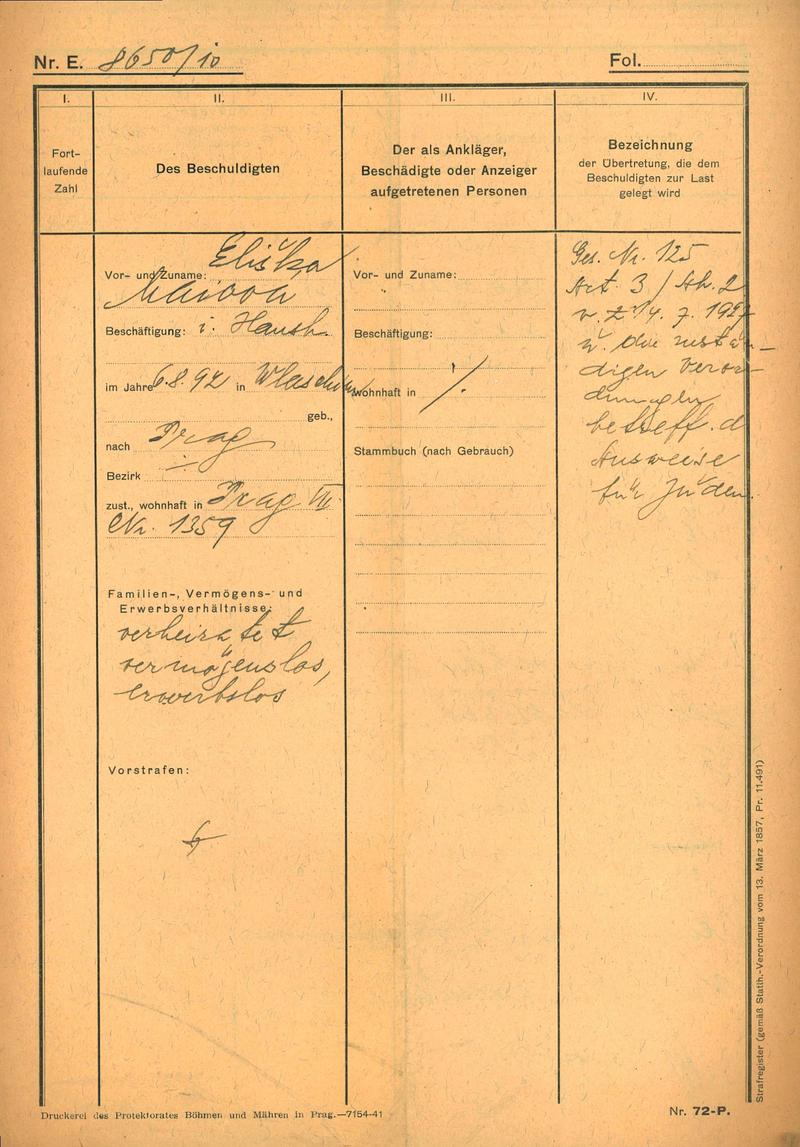 Nr. E. 8650/10
Fol.
I.
Fort-
laufende
Zahl
II.
Des Beschuldigten
III.
Der als Ankläger,
Beschädigte oder Anzeiger
aufgetretenen Personen
IV.
Bezeichnung
der Übertretung, die dem
Beschuldigten zur Last
gelegt wird
Vor- und Zuname: Eliška
Beschäftigung: i. Haush.
im Jahre 6.8.92 in
geb.,
nach Prag
Bezirk
zust., wohnhaft in Prag
Nr. 1359
Familien-, Vermögens- und
Erwerbsverhältnisse:
verheiratet
vermögenslos,
erwerbslos
Vorstrafen:
Vor- und Zuname:
Beschäftigung:
wohnhaft in
Stammbuch (nach Gebrauch)
Ges. Nr. 125
Art. 3 / Ab. 2
v. 14. 7. 1927
digen Veror-
dnungen
betreff. d
Ausweise
für Juden.
Strafregister (gemäß Statth.-Verordnung vom 13. März 1857, Pr. 11.491)
Druckerei des Protektorates Böhmen und Mähren in Prag.—7154-41
Nr. 72-P.